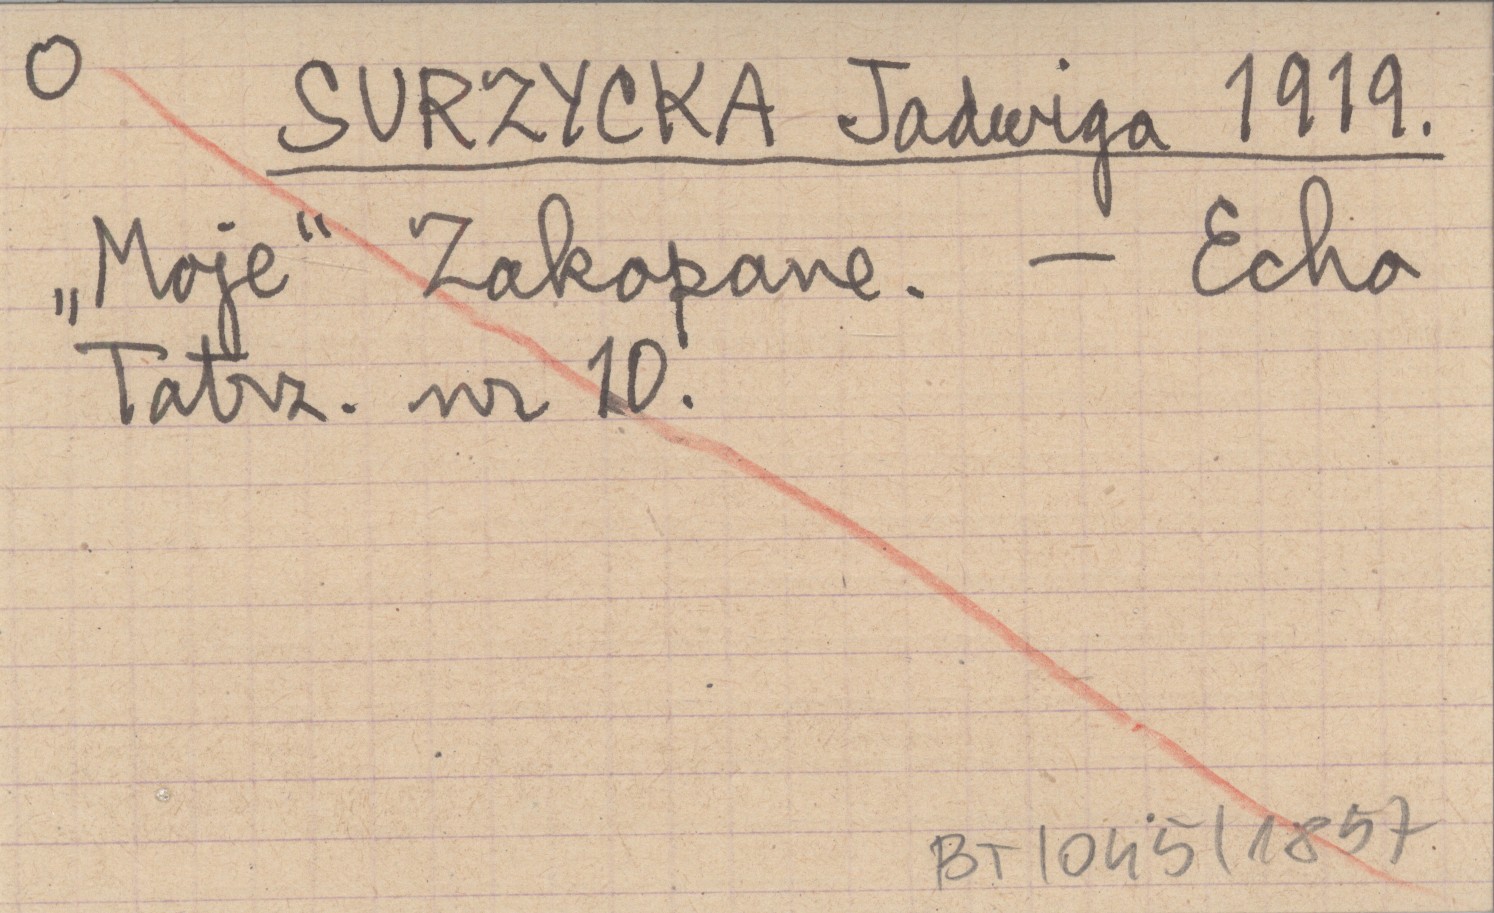 O
SURZYCKA Jadwiga 1919.
„Moje“ Zakopane. — Echo
Tatrz. nr 10.
BT/045/1857